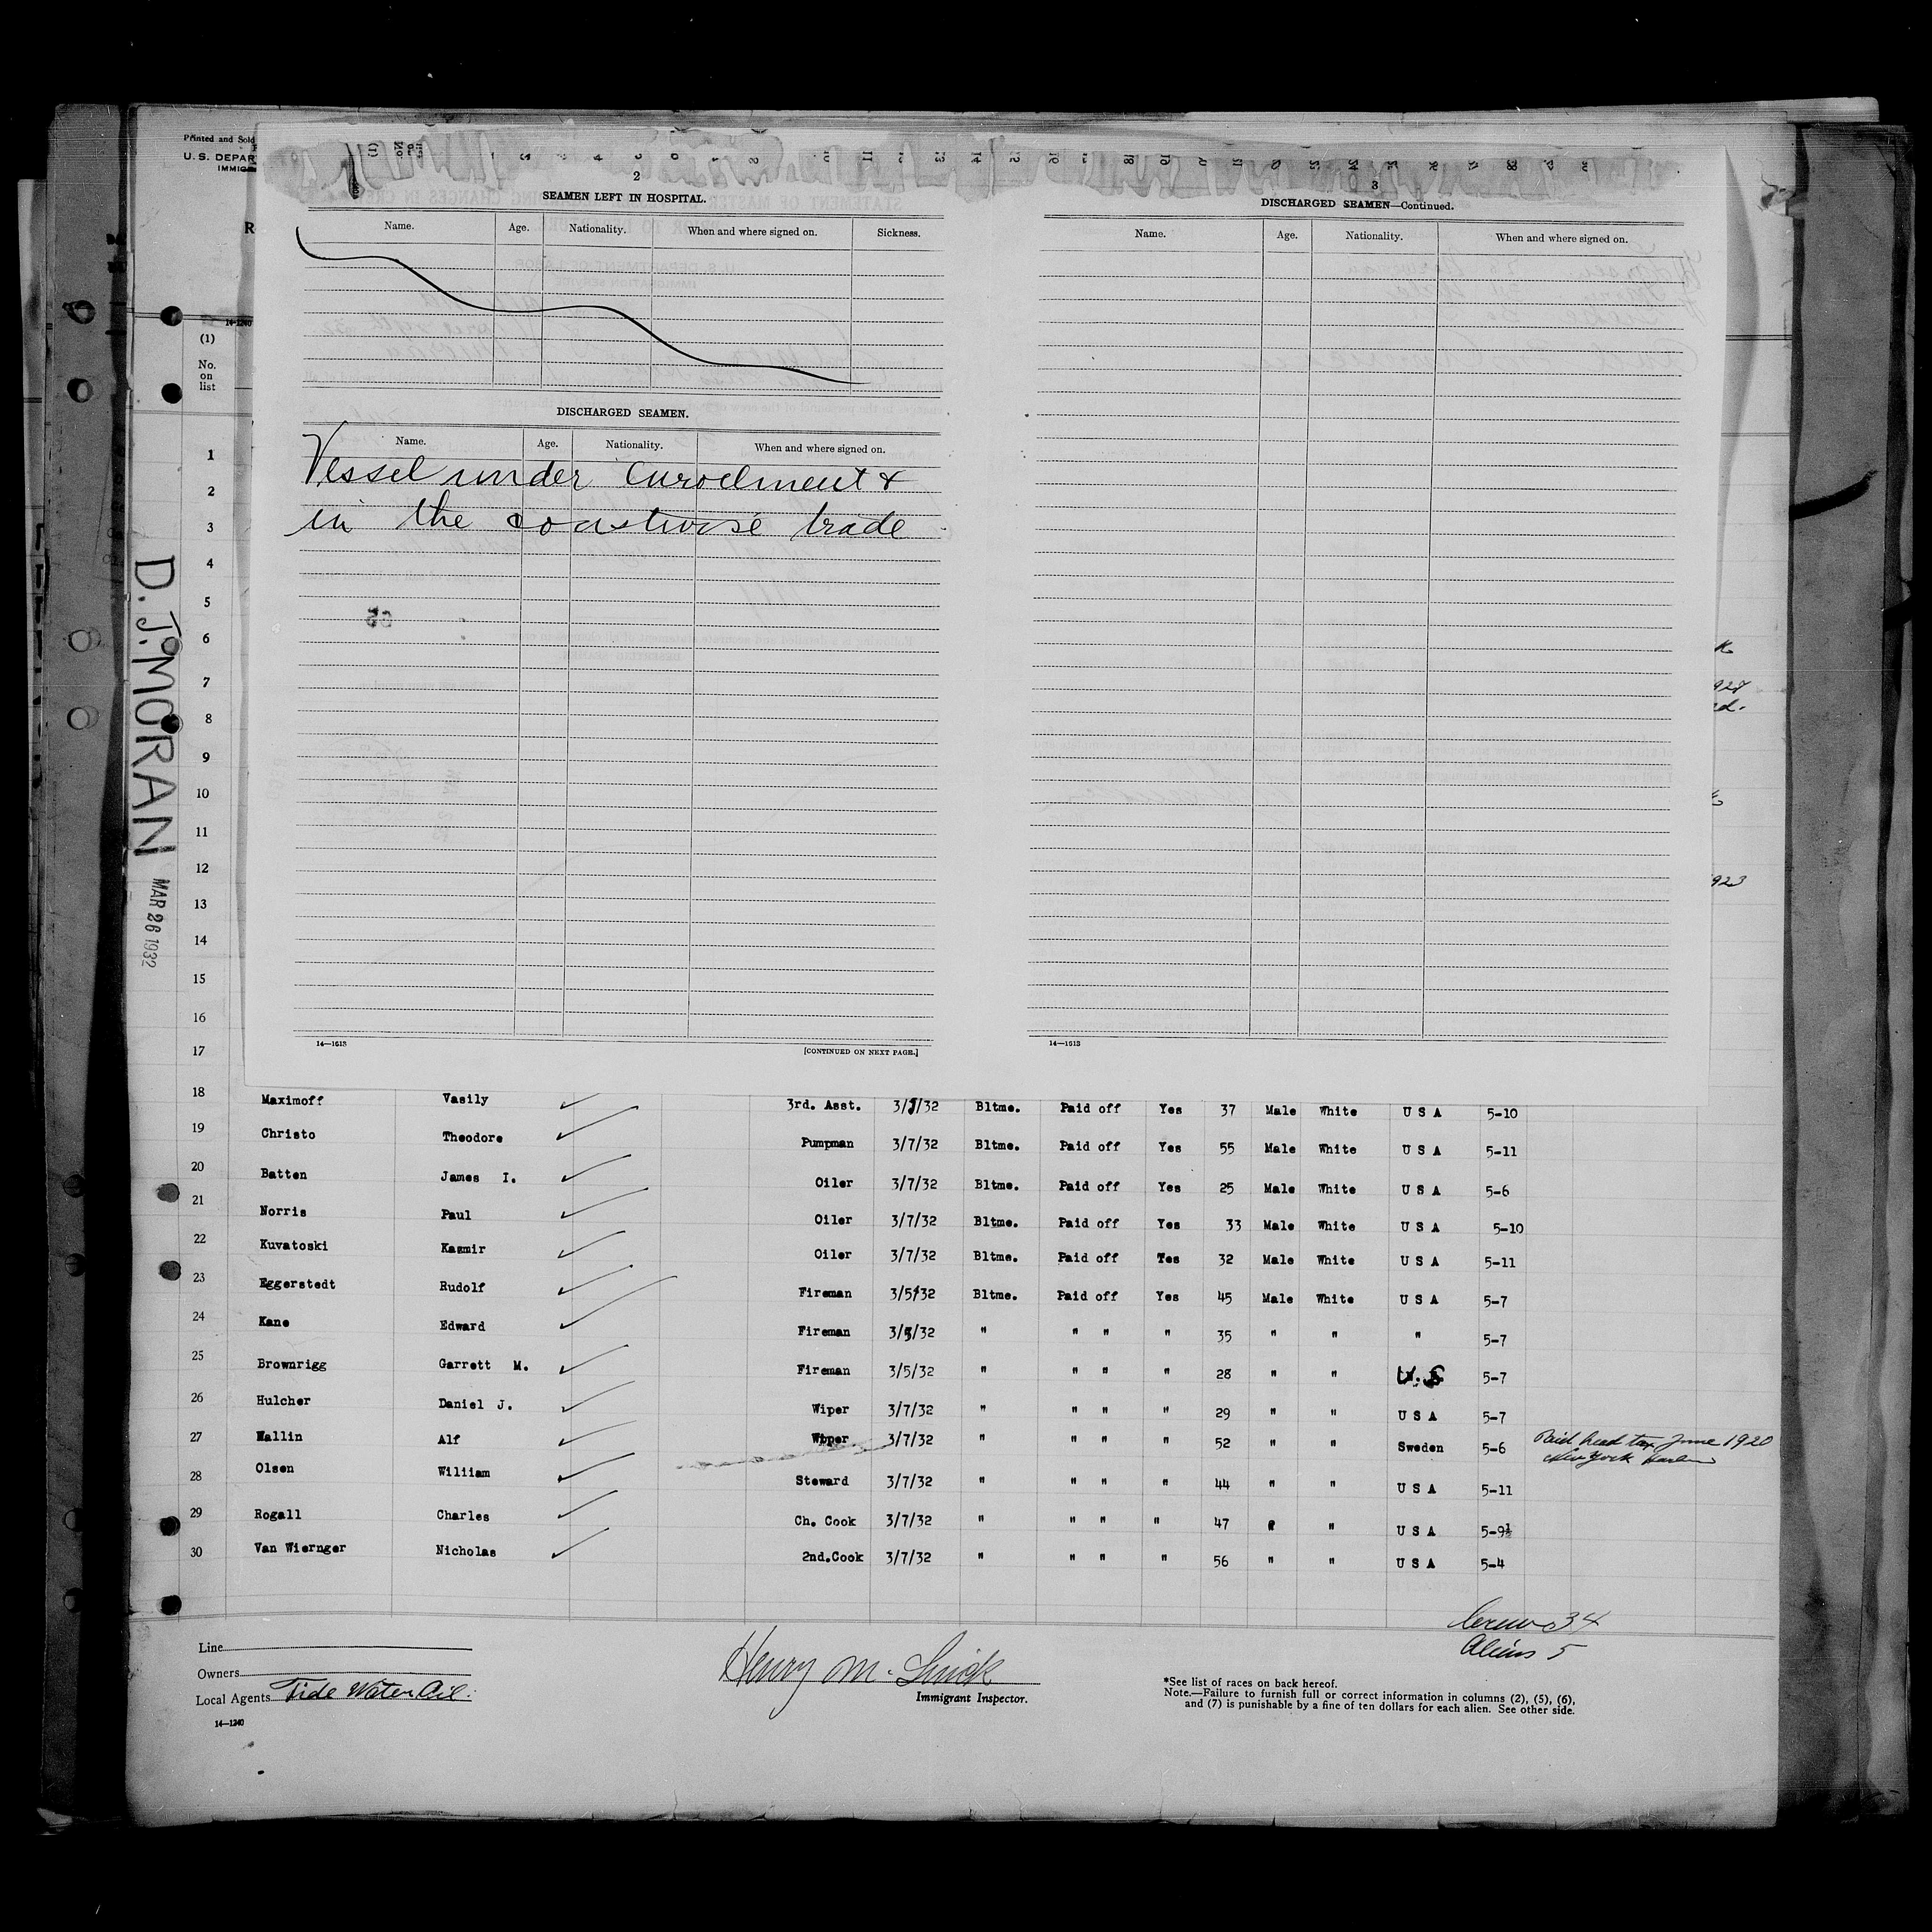 Printed and Sold
U. S. DEPAR
IMMIG
2
SEAMEN LEFT IN HOSPITAL.
Name. Age. Nationality. When and where signed on. Sickness.
DISCHARGED SEAMEN.
Name. Age. Nationality. When and where signed on.
Vessel under Enrollment &
in the coastwise trade
14—1613
[CONTINUED ON NEXT PAGE.]
3
DISCHARGED SEAMEN—Continued.
Name. Age. Nationality. When and where signed on.
14—1613
14-1240
(1)
No.
on
list
1
2
3
4
5
6
7
8
9
10
11
12
13
14
15
16
17
D. J. MORAN
MAR 26 1932
18 Maximoff Vasily 3rd. Asst. 3/7/32 Bltme. Paid off Yes 37 Male White U S A 5-10
19 Christo Theodore Pumpman 3/7/32 Bltme. Paid off Yes 55 Male White U S A 5-11
20 Batten James I. Oiler 3/7/32 Bltme. Paid off Yes 25 Male White U S A 5-6
21 Norris Paul Oiler 3/7/32 Bltme. Paid off Yes 33 Male White U S A 5-10
22 Kuvatoski Kazmir Oiler 3/7/32 Bltme. Paid off Yes 32 Male White U S A 5-11
23 Eggerstedt Rudolf Fireman 3/5/32 Bltme. Paid off Yes 45 Male White U S A 5-7
24 Kane Edward Fireman 3/5/32 " " " " 35 " " " 5-7
25 Brownrigg Garrett M. Fireman 3/5/32 " " " " 28 " " U.S 5-7
26 Hulcher Daniel J. Wiper 3/7/32 " " " " 29 " " U S A 5-7
27 Wallin Alf Wiper 3/7/32 " " " " 52 " " Sweden 5-6 Paid head tax June 1920
New York
28 Olsen William Steward 3/7/32 " " " " 44 " " U S A 5-11
29 Rogall Charles Ch. Cook 3/7/32 " " " " 47 " " U S A 5-9½
30 Van Wiernger Nicholas 2nd.Cook 3/7/32 " " " " 56 " " U S A 5-4
Crew 34
Aliens 5
Line
Owners
Local Agents Tide Water Oil.
14—1240
Henry M.
Immigrant Inspector.
*See list of races on back hereof.
Note.—Failure to furnish full or correct information in columns (2), (5), (6),
and (7) is punishable by a fine of ten dollars for each alien. See other side.